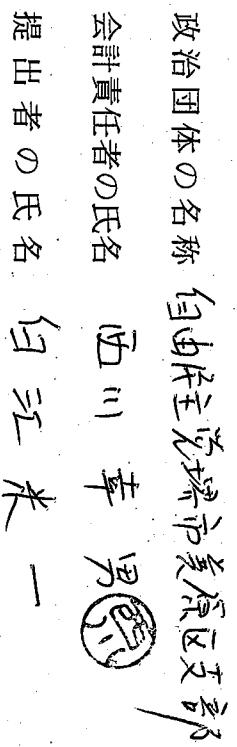 政治団体の名称 自由民主党堺市美原区支部
会計責任者の氏名 西川幸男
提出者の氏名 白江米一